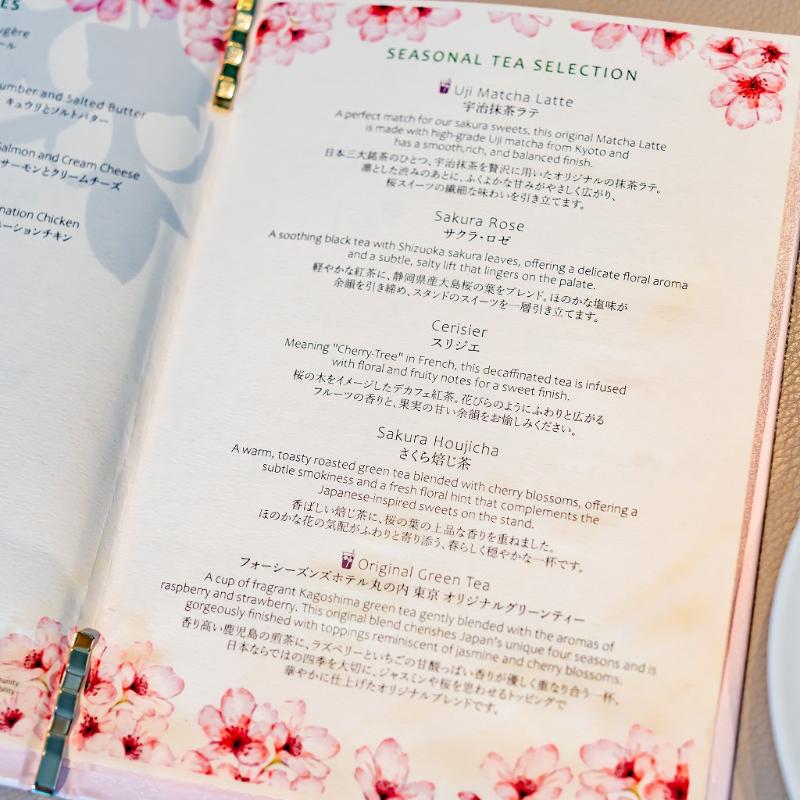 ES
ugère
ール
umber and Salted Butter
キュウリとソルトバター
Salmon and Cream Cheese
サーモンとクリームチーズ
nation Chicken
ーションチキン
SEASONAL TEA SELECTION
Uji Matcha Latte
宇治抹茶ラテ
A perfect match for our sakura sweets, this original Matcha Latte
is made with high-grade Uji matcha from Kyoto and
has a smooth,rich, and balanced finish.
日本三大銘茶のひとつ、宇治抹茶を贅沢に用いたオリジナルの抹茶ラテ。
凛とした渋みのあとに、ふくよかな甘みがやさしく広がり、
桜スイーツの繊細な味わいを引き立てます。
Sakura Rose
サクラ・ロゼ
A soothing black tea with Shizuoka sakura leaves, offering a delicate floral aroma
and a subtle, salty lift that lingers on the palate.
軽やかな紅茶に、静岡県産大島桜の葉をブレンド。ほのかな塩味が
余韻を引き締め、スタンドのスイーツを一層引き立てます。
Cerisier
スリジエ
Meaning "Cherry-Tree" in French, this decaffinated tea is infused
with floral and fruity notes for a sweet finish.
桜の木をイメージしたデカフェ紅茶。花びらのようにふわりと広がる
フルーツの香りと、果実の甘い余韻をお愉しみください。
Sakura Houjicha
さくら焙じ茶
A warm, toasty roasted green tea blended with cherry blossoms, offering a
subtle smokiness and a fresh floral hint that complements the
Japanese-inspired sweets on the stand.
香ばしい焙じ茶に、桜の葉の上品な香りを重ねました。
ほのかな花の気配がふわりと寄り添う、春らしく穏やかな一杯です。
Original Green Tea
フォーシーズンズホテル丸の内 東京 オリジナルグリーンティー
A cup of fragrant Kagoshima green tea gently blended with the aromas of
raspberry and strawberry. This original blend cherishes Japan's unique four seasons and is
gorgeously finished with toppings reminiscent of jasmine and cherry blossoms.
香り高い鹿児島の煎茶に、ラズベリーといちごの甘酸っぱい香りが優しく重なり合う一杯、
日本ならではの四季を大切に、ジャスミンや桜を思わせるトッピングで
華やかに仕上げたオリジナルブレンドです。